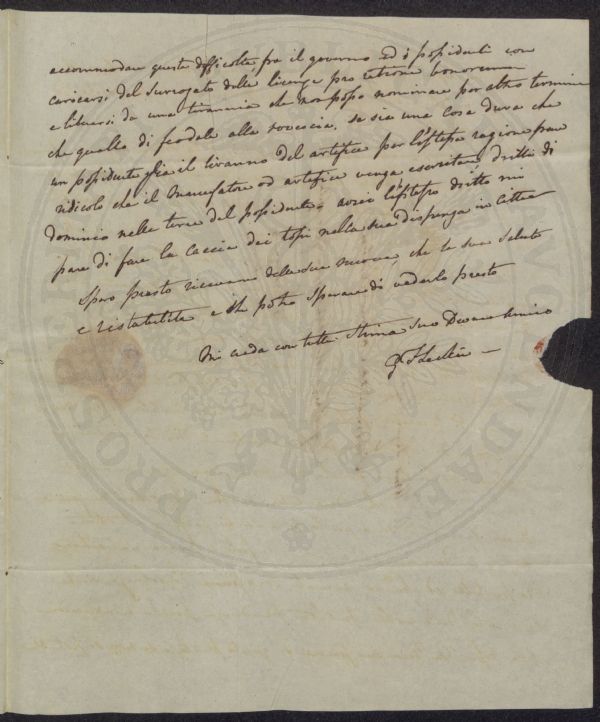 accommodare queste difficolta fra il governo ed i possidenti con
caricarsi del Surrogato delle licenze pro ratione bonorum
e liberarsi da una tirannia che non posso nominare per altro termine
che quella di feodale alla rovescia, se sia una cosa dura che
un possidente sia il tiranno del artefice per l'istessa ragione pare
ridicolo che il Manufatore od artefice venga esercitare dritti di
dominio nelle terre del possidente - avrei l'istesso dritto mi
pare di fare la caccia dei topi nella sua dispensa in Citta
Spero presto ricevere delle sue nuove, che la sua Salute
e ristabilita e che potro sperare di vederlo presto
Mi creda con tutta Stima Suo Devmo Amico
PROS VOLENDAE